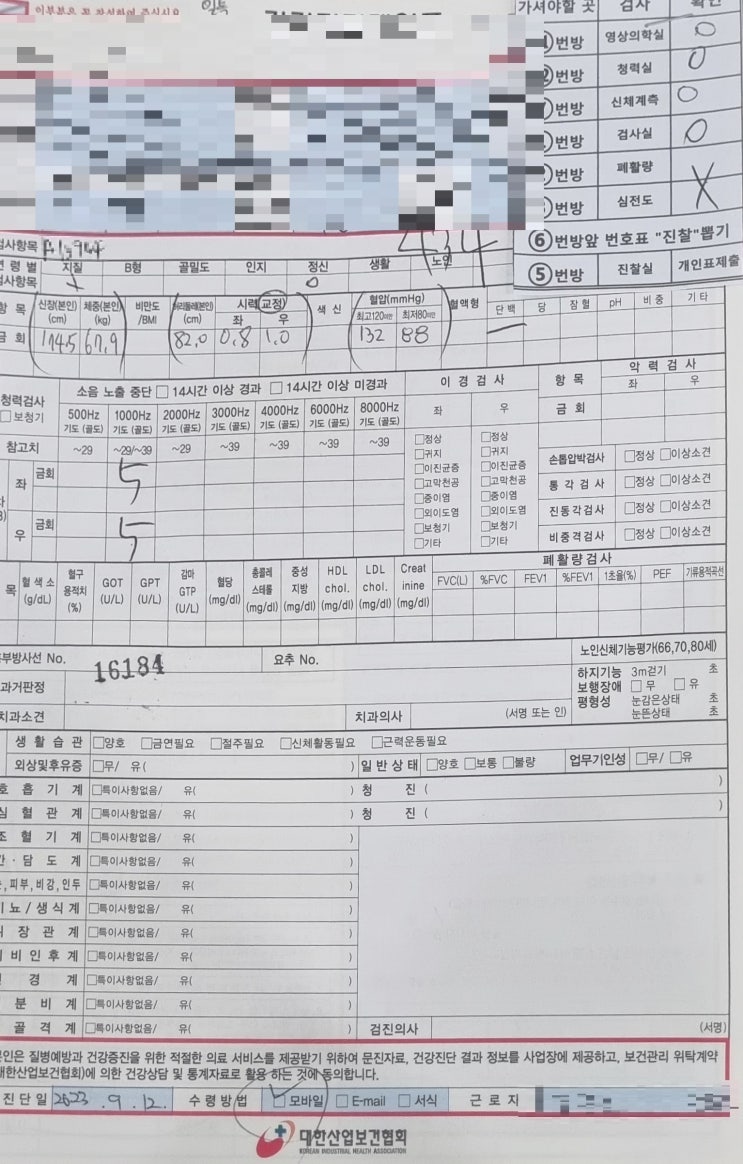 이부분은 꼭 작성하여 주십시오
일특
가셔야할 곳 검사 확인
번방 영상의학실 O
번방 청력실 O
번방 신체계측 O
번방 검사실 O
번방 폐활량
번방 심전도 X
⑥ 번방앞 번호표 "진찰"뽑기
⑤ 번방 진찰실 개인표제출
검사항목
434
연령별 지질 B형 골밀도 인지 정신 생활 노인
검사항목 O
항목 신장(본인) (cm) 체중(본인) (kg) 비만도 /BMI 허리둘레(본인) (cm) 시력(교정) 좌 우 색신 혈압(mmHg) 최고120미만 최저80미만 혈액형 단백 당 잠혈 pH 비중 기타
금회 174.5 67.9 82.0 0.8 1.0 132 88
청력검사 소음 노출 중단 □ 14시간 이상 경과 □ 14시간 이상 미경과
□ 보청기 500Hz 기도 (골도) 1000Hz 기도 (골도) 2000Hz 기도 (골도) 3000Hz 기도 (골도) 4000Hz 기도 (골도) 6000Hz 기도 (골도) 8000Hz 기도 (골도)
참고치 ~29 ~29/~39 ~29 ~39 ~39 ~39 ~39
좌 금회 5
우 금회 5
이경검사
좌 우
□정상 □정상
□귀지 □귀지
□이진균증 □이진균증
□고막천공 □고막천공
□중이염 □중이염
□외이도염 □외이도염
□보청기 □보청기
□기타 □기타
항목 악력검사
좌 우
금회
손톱압박검사 □정상 □이상소견
통각검사 □정상 □이상소견
진동각검사 □정상 □이상소견
비중격검사 □정상 □이상소견
목 혈색소 (g/dL) 혈구용적치 (%) GOT (U/L) GPT (U/L) 감마 GTP (U/L) 혈당 (mg/dl) 총콜레스테롤 (mg/dl) 중성지방 (mg/dl) HDL chol. (mg/dl) LDL chol. (mg/dl) Creatinine (mg/dl)
폐활량검사
FVC(L) %FVC FEV1 %FEV1 1초율(%) PEF 기류용적곡선
흉부방사선 No. 16184 요추 No.
노인신체기능평가(66,70,80세)
과거판정
하지기능 3m걷기 초
보행장애 □ 무 □ 유
평형성 눈감은상태 초
눈뜬상태 초
치과소견 치과의사 (서명 또는 인)
생활습관 □양호 □금연필요 □절주필요 □신체활동필요 □근력운동필요
외상및후유증 □무/ 유( ) 일반상태 □양호 □보통 □불량 업무기인성 □무/ □유
호흡기계 □특이사항없음/ 유( ) 청진 ( )
심혈관계 □특이사항없음/ 유( ) 청진 ( )
조혈기계 □특이사항없음/ 유( )
간·담도계 □특이사항없음/ 유( )
,피부,비강,인두 □특이사항없음/ 유( )
비뇨/생식계 □특이사항없음/ 유( )
위장관계 □특이사항없음/ 유( )
이비인후계 □특이사항없음/ 유( )
신경계 □특이사항없음/ 유( )
내분비계 □특이사항없음/ 유( )
근골격계 □특이사항없음/ 유( )
검진의사 (서명)
본인은 질병예방과 건강증진을 위한 적절한 의료 서비스를 제공받기 위하여 문진자료, 건강진단 결과 정보를 사업장에 제공하고, 보건관리 위탁계약
(대한산업보건협회)에 의한 건강상담 및 통계자료로 활용 하는 것에 동의합니다.
진단일 2023. 9. 12. 수령방법 ☑ 모바일 □ E-mail □ 서식 근로지
대한산업보건협회
KOREAN INDUSTRIAL HEALTH ASSOCIATION